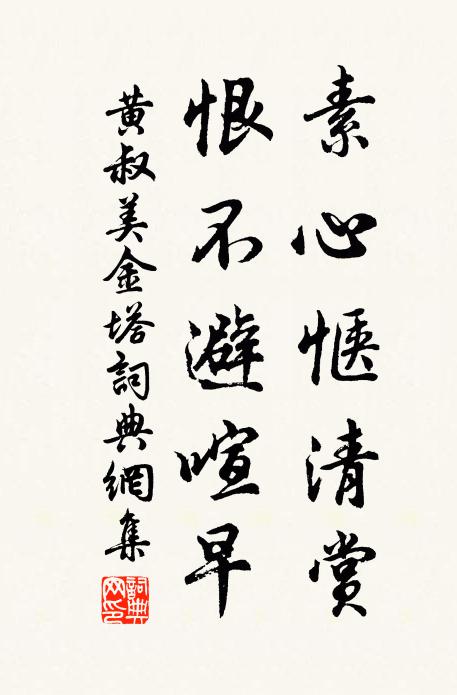 素心惬清赏
恨不避喧早
黄叔美金塔詞典網集
詞典网印